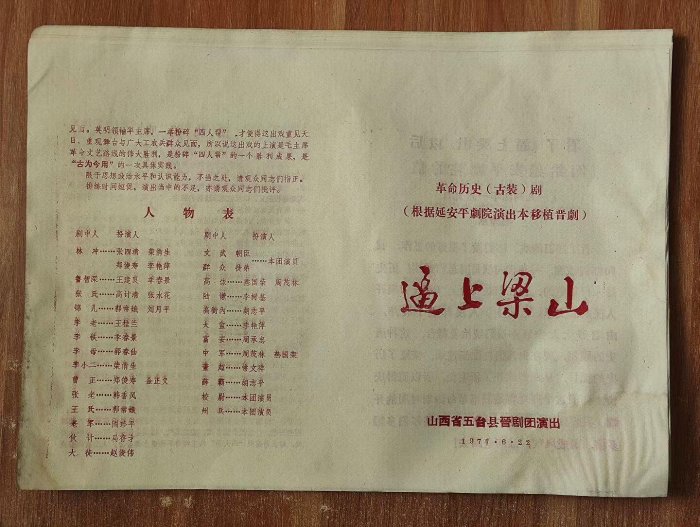 见日。英明领袖华主席，一举粉碎“四人帮”，才使得这出戏重见天
日，重返舞台与广大工农兵群众见面，所以说这出戏的上演是毛主席
革命文艺路线的伟大胜利，是粉碎“四人帮”的一个胜利成果，是
“古为今用”的一次具体实践。
限于思想政治水平和认识能力，不当之处，请观众同志们指正。
排练时间短促，演出当中的不足，亦请观众同志们批评。
人 物 表
剧中人 扮演人 剧中人 扮演人
林 冲……张四清
郑俊寿 李艳萍
鲁智深……王建贝 李春景
张 氏……高计清 张永花
锦 儿……郭常娥 刘月平
李 老……王桂兰
李 铁……李春景
李 母……郭春仙
李小二……梁清生
曹 正……郑俊寿
张 老……韩香凤
王 氏……郭常娥
老 军……
伙 计……
大 徒……赵俊伟
文武朝臣
群众 徒弟……本团演员
高 俅…… 周茂林
陆 谦……李树基
高衙内……胡志平
天 蓝……李艳萍
富 安……周承忠
中 军……周茂林
董 超……
薛 霸……胡志平
校 尉……本团演员
州 兵……本团演员
革命历史（古装）剧
（根据延安平劇院演出本移植晋劇）
逼上梁山
山西省五台县晋剧团演出
1977·6·22